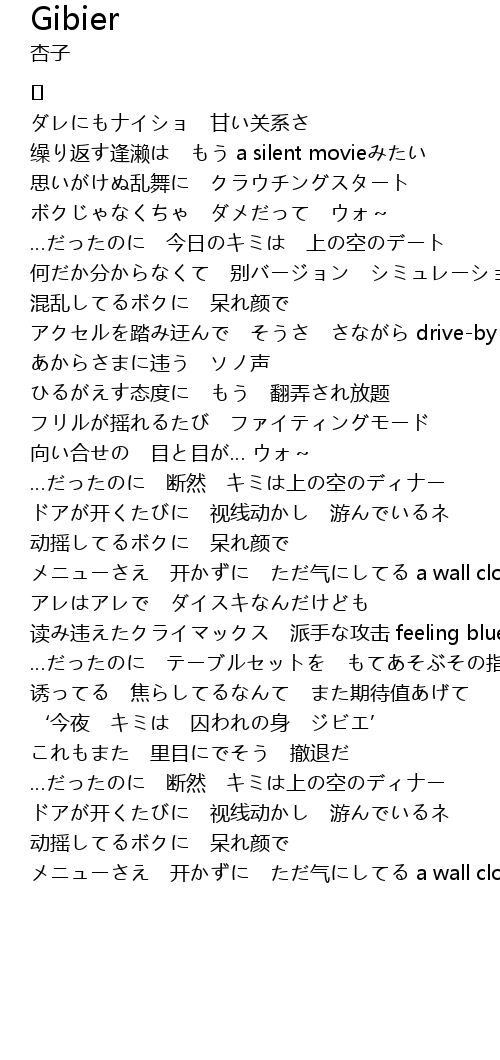 Gibier
杏子
[]
ダレにもナイショ　甘い关系さ
缲り返す逢濑は　もう a silent movieみたい
思いがけぬ乱舞に　クラウチングスタート
ボクじゃなくちゃ　ダメだって　ウォ～
...だったのに　今日のキミは　上の空のデート
何だか分からなくて　别バージョン　シミュレーショ
混乱してるボクに　呆れ颜で
アクセルを踏み迂んで　そうさ　さながら drive-by
あからさまに违う　ソノ声
ひるがえす态度に　もう　翻弄され放题
フリルが摇れるたび　ファイティングモード
向い合せの　目と目が... ウォ～
...だったのに　断然　キミは上の空のディナー
ドアが开くたびに　视线动かし　游んでいるネ
动摇してるボクに　呆れ颜で
メニューさえ　开かずに　ただ气にしてる a wall clo
アレはアレで　ダイスキなんだけども
读み违えたクライマックス　派手な攻击 feeling blue
...だったのに　テーブルセットを　もてあそぶその指
诱ってる　焦らしてるなんて　また期待值あげて
‘今夜　キミは　囚われの身　ジビエ’
これもまた　里目にでそう　撤退だ
...だったのに　断然　キミは上の空のディナー
ドアが开くたびに　视线动かし　游んでいるネ
动摇してるボクに　呆れ颜で
メニューさえ　开かずに　ただ气にしてる a wall clo